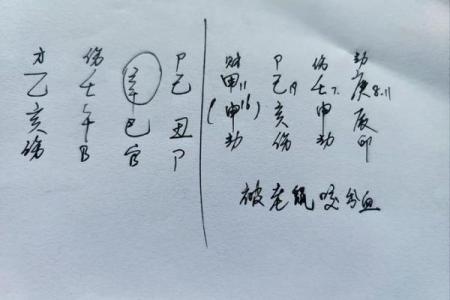 才 伤 P
乙 壬 辛 己
亥 午 巳 丑
伤 B 官 P
财 P 伤 劫
甲11 己19 壬7. 庚8.11
(申16) 亥 申 辰
劫 伤 劫 印
被老鼠咬出血